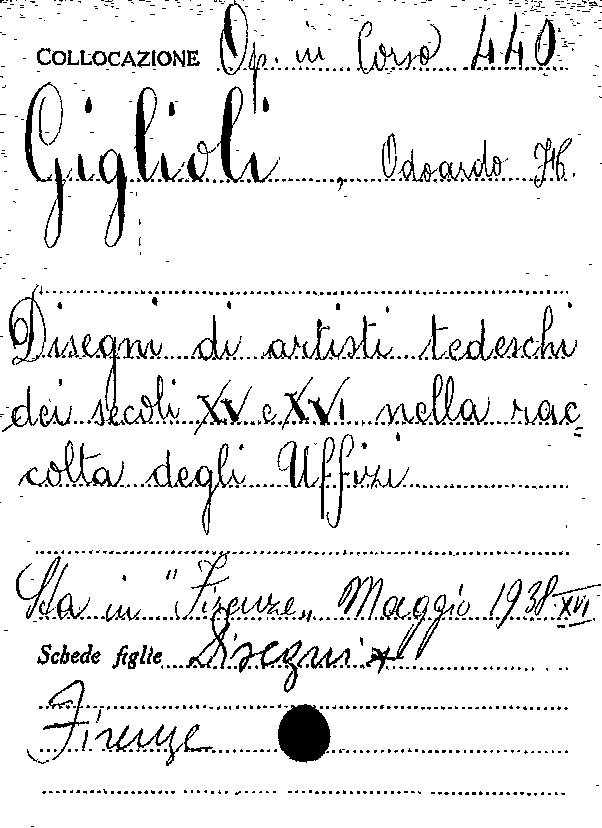 COLLOCAZIONE Op. in Corso 440
Giglioli, Odoardo H.
Disegni di artisti tedeschi
dei secoli XV e XVI nella rac=
colta degli Uffizi
Sta in "Firenze„ Maggio 1938-XVI
Schede figlie Disegni *
Firenze